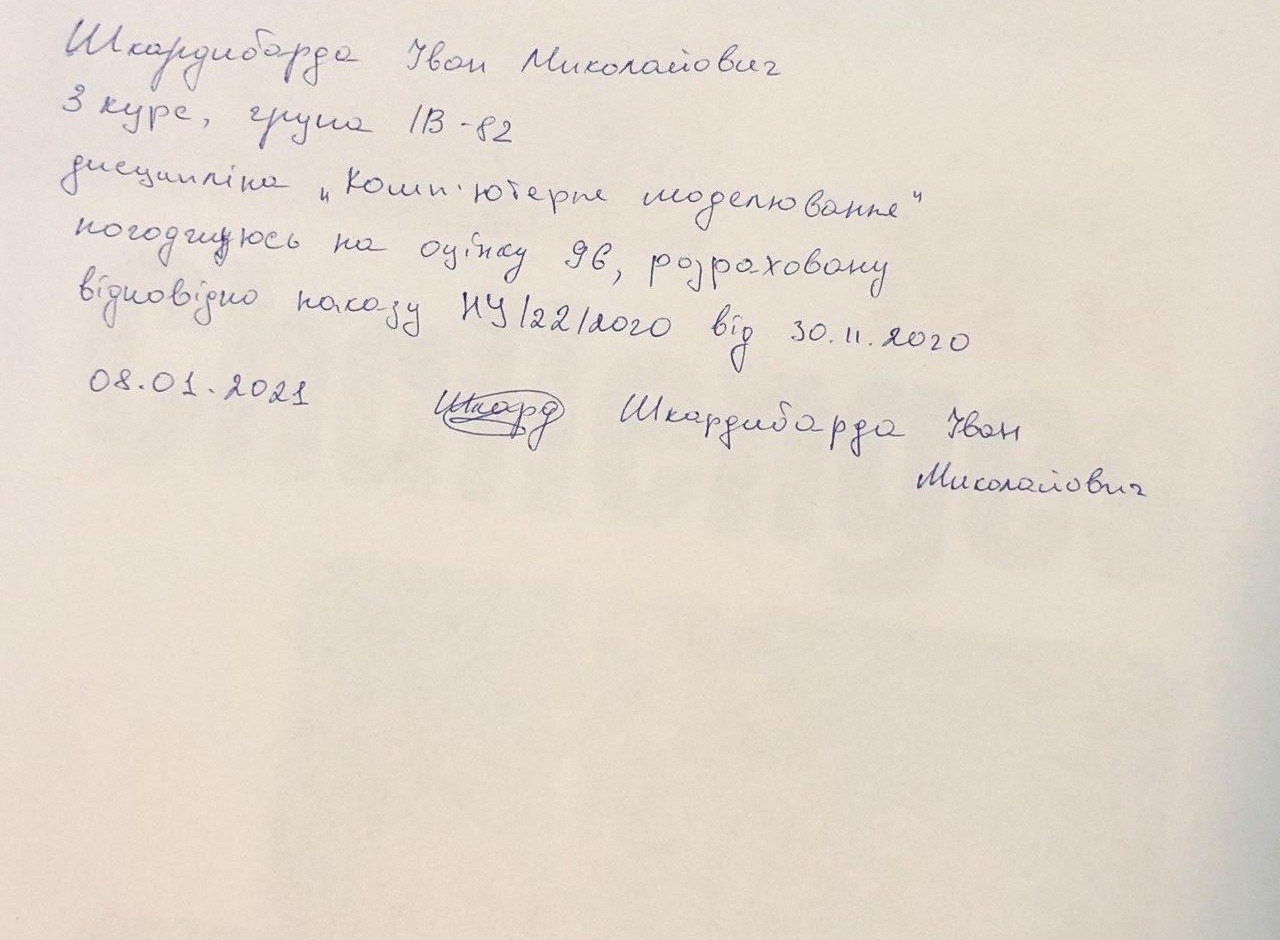 Шкардибарда Іван Миколайович
3 курс, група ІВ-82
дисципліна „Комп'ютерне моделювання"
погоджуюсь на оцінку 96, розраховану
відповідно наказу НУ/22/2020 від 30.11.2020
08.01.2021 Шкард Шкардибарда Іван
Миколайович